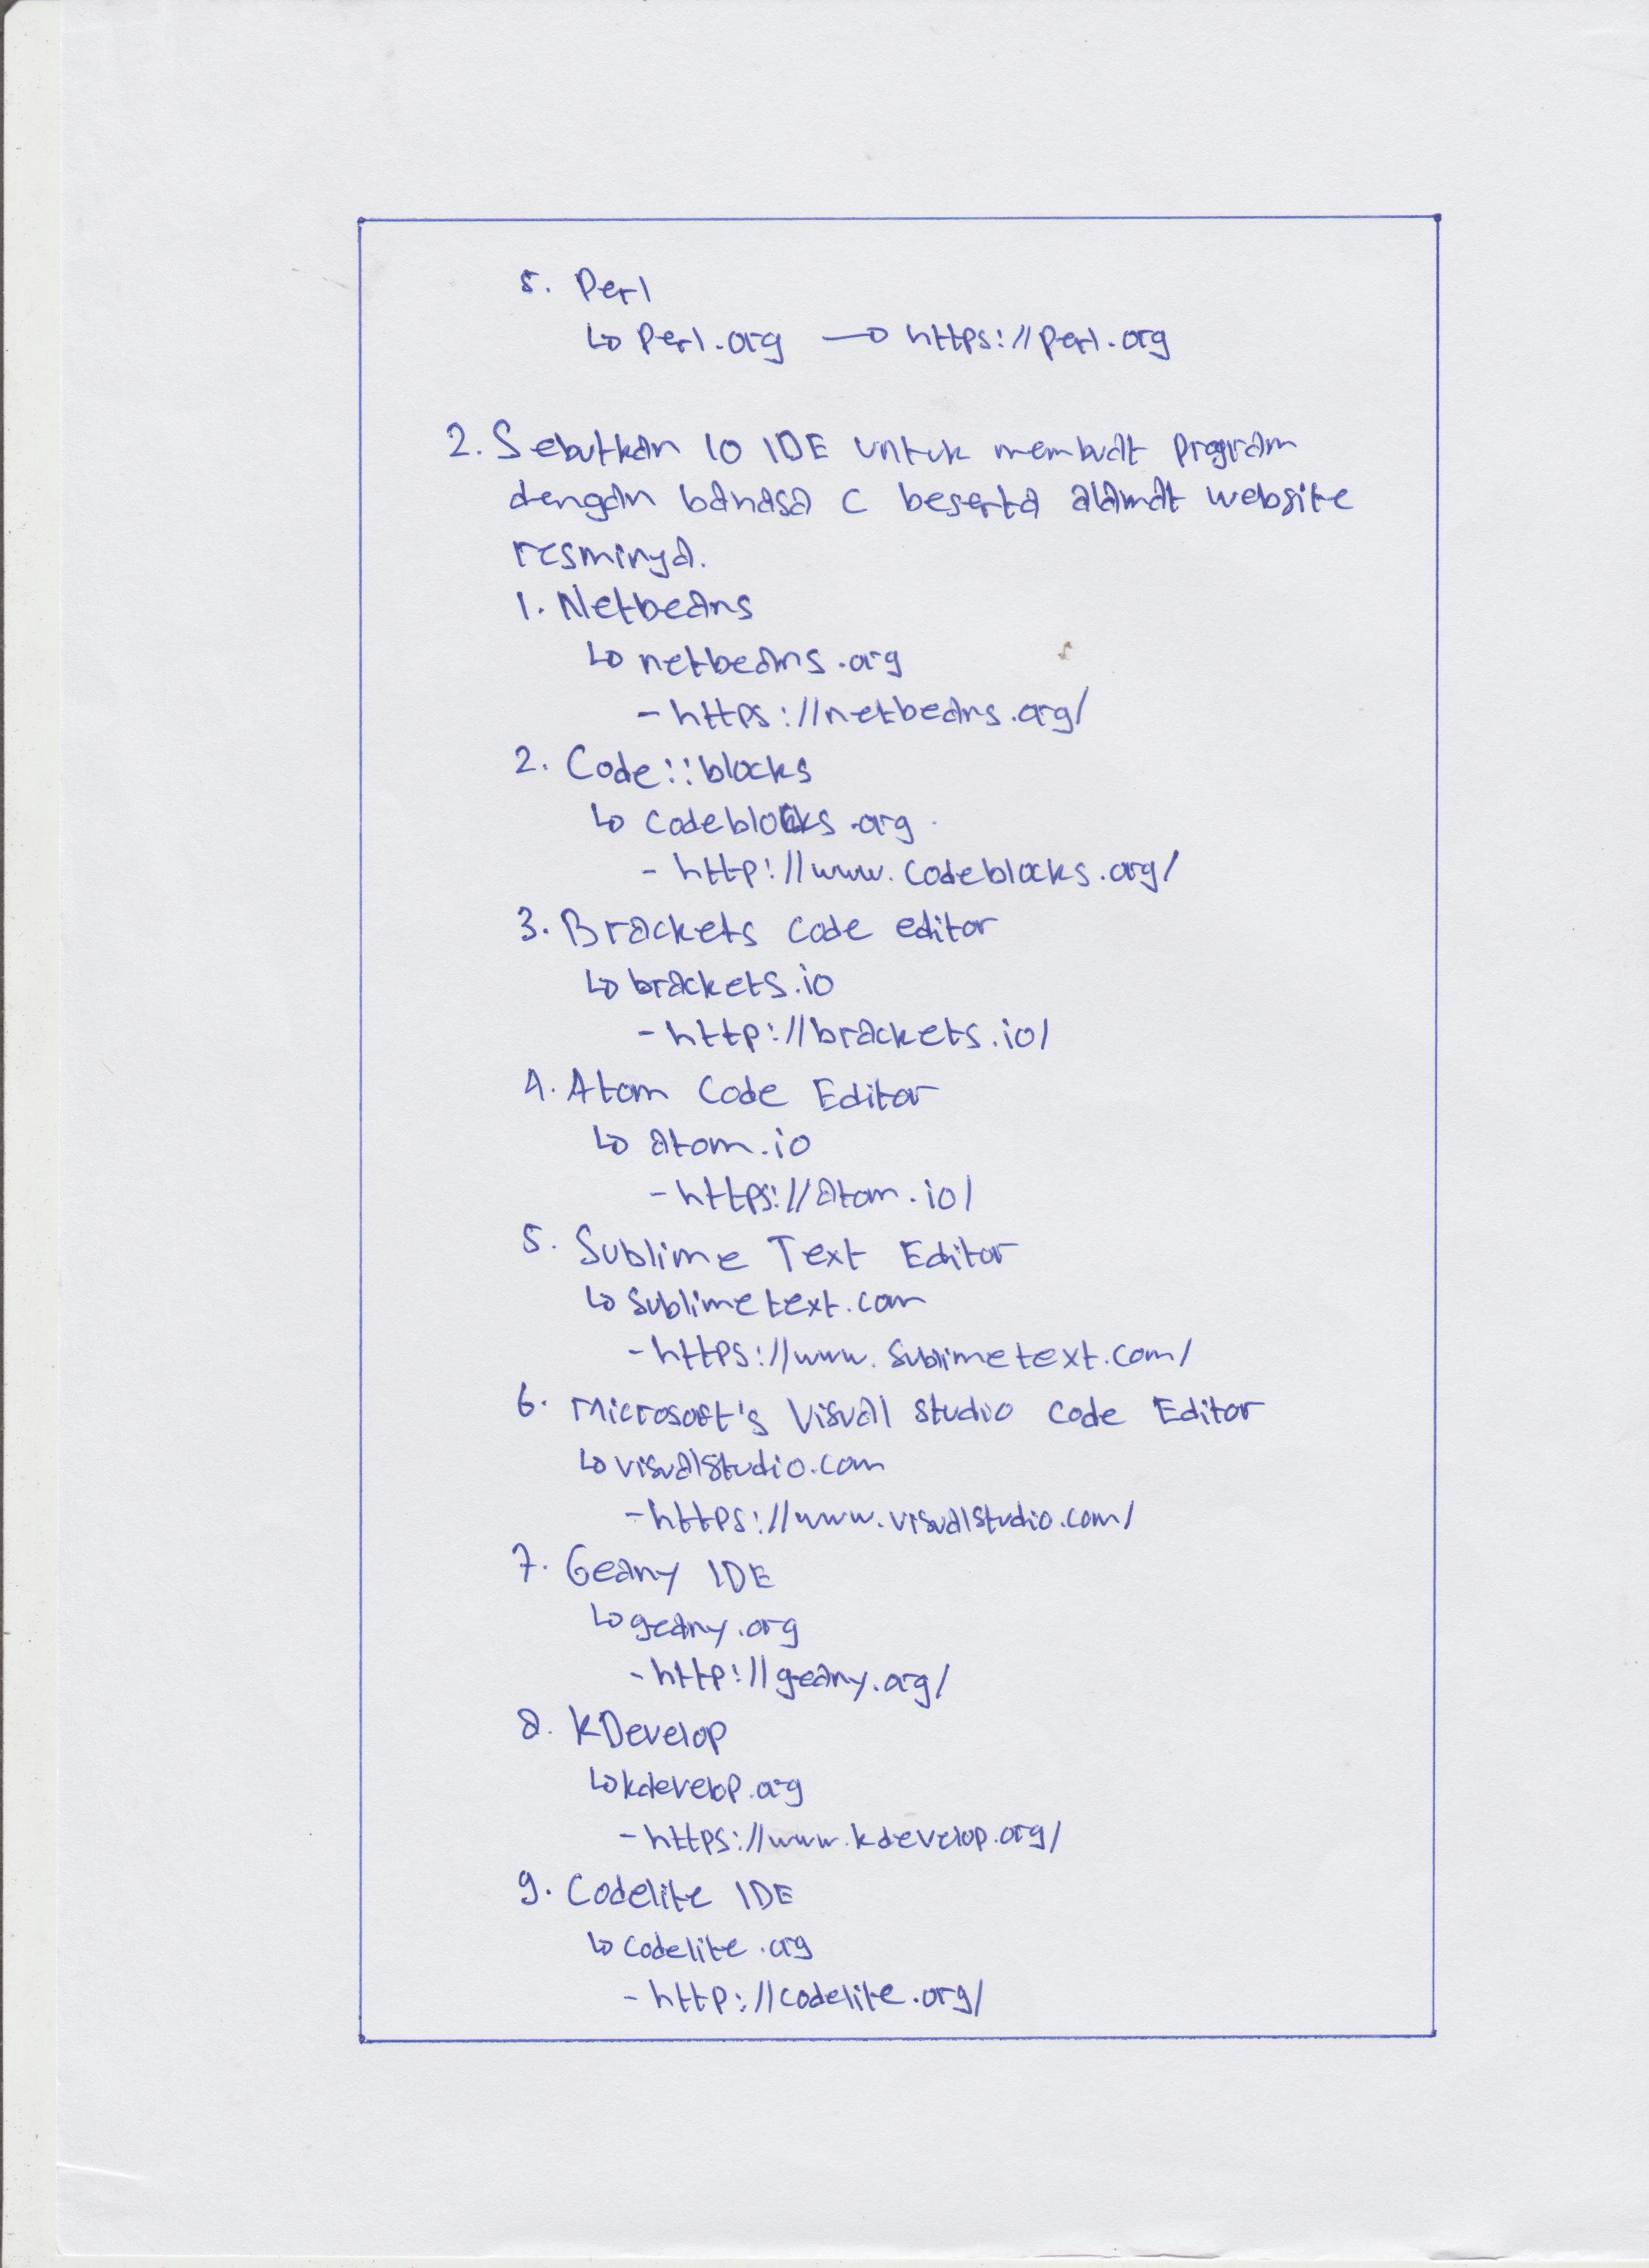 5. Perl
↳ Perl.org → https://perl.org
2. Sebutkan 10 IDE untuk membuat program
dengan bahasa C beserta alamat website
resminya.
1. Netbeans
↳ netbeans.org
- https://netbeans.org/
2. Code::blocks
↳ codeblocks.org
- http://www.codeblocks.org/
3. Brackets Code editor
↳ brackets.io
- http://brackets.io/
4. Atom Code Editor
↳ atom.io
- https://atom.io/
5. Sublime Text Editor
↳ sublimetext.com
- https://www.sublimetext.com/
6. Microsoft's Visual Studio Code Editor
↳ visualstudio.com
- https://www.visualstudio.com/
7. Geany IDE
↳ geany.org
- http://geany.org/
8. KDevelop
↳ kdevelop.org
- https://www.kdevelop.org/
9. Codelite IDE
↳ codelite.org
- http://codelite.org/